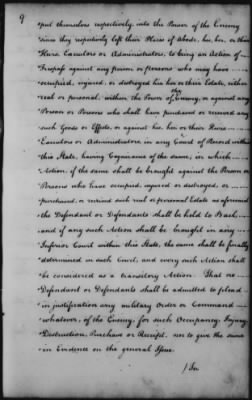 9
put themselves respectively, into the Power of the Enemy
since they respectively left their Places of Abode, his, her, or their
Heirs Executors or Administrators, to bring an Action of
Trespass against any person or persons who may have
occupied, injured, or destroyed his, her or their Estate, either
real or personal, within the Power of the Enemy, or against any
Person or Persons who shall have purchased or received any
such Goods or Effects, or against his, her or their Heirs
Executors or Administrators in any Court of Record within
this State, having Cognizance of the same; in which
Action, if the same shall be brought against the Person or
Persons who have occupied, injured or destroyed, or
purchased, or received such real or personal Estate as aforesaid
the Defendant or Defendants shall be held to Bail
and if any such Action shall be brought in any
Inferior Court within this State, the same shall be finally
determined in such Court, and every such Action shall
be considered as a transitory Action. That no
Defendant or Defendants shall be admitted to plead
in justification any military Order or Command
whatever, of the Enemy, for such Occupancy, Injury,
Destruction, Purchase or Receipt, nor to give the same
in Evidence on the general Issue.